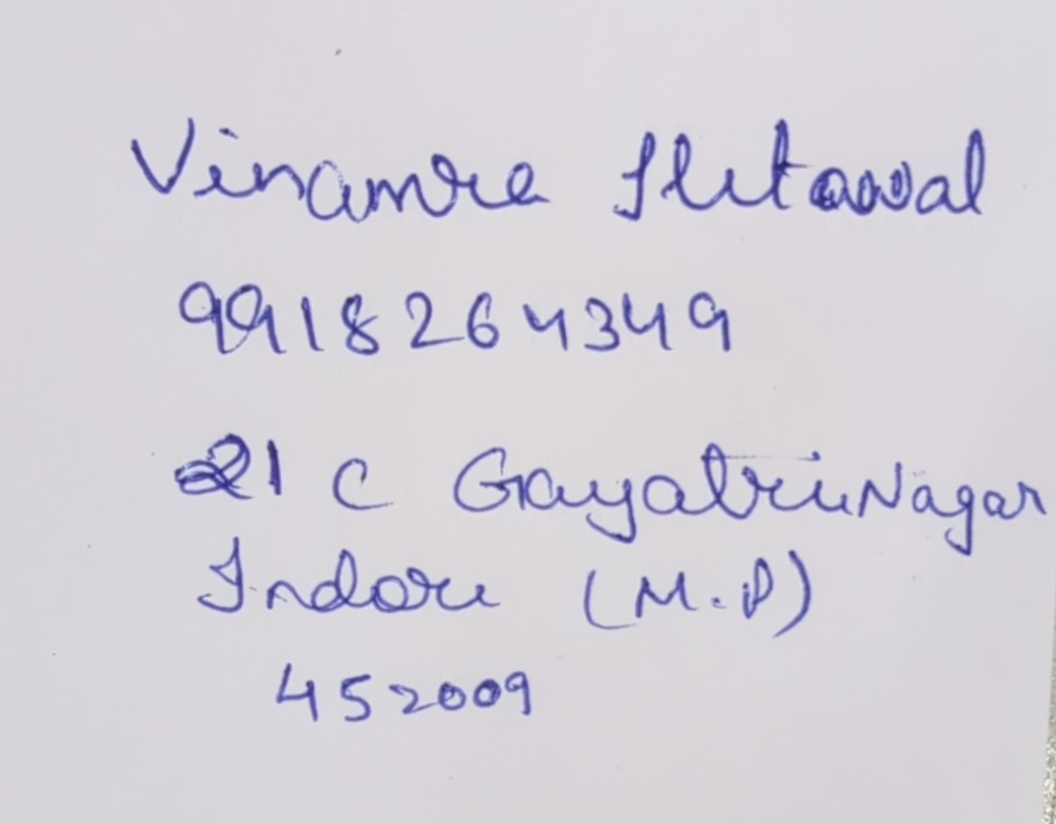 Vinamre Jhitawal
9918264349
21 C Gayatri Nagar
Indore (M.P)
452009